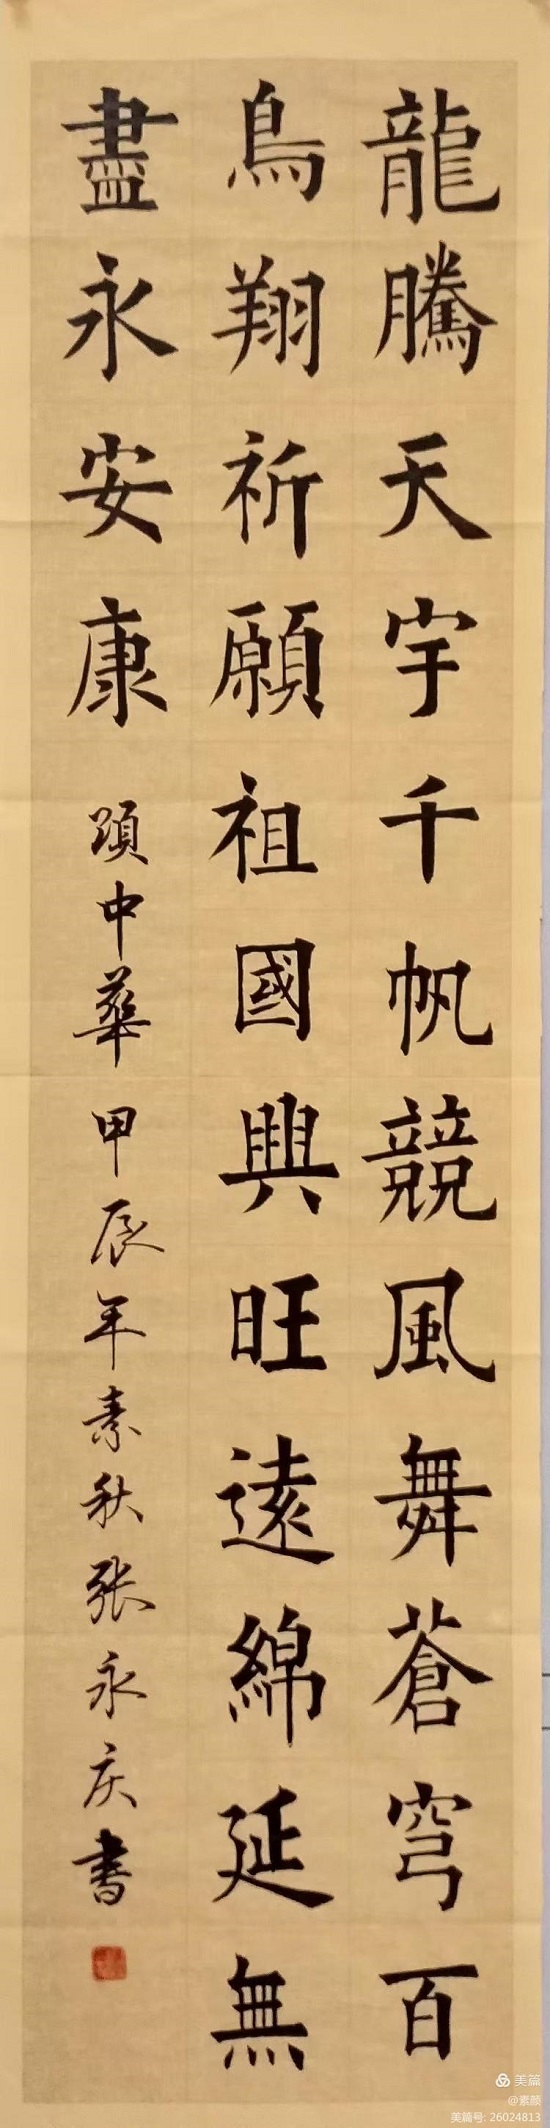 龍騰天宇千帆競風舞蒼穹百
鳥翔祈願祖國興旺遠綿延無
盡永安康
頌中華甲辰年素秋张永庆書
美篇
@素颜
美篇号: 26024813